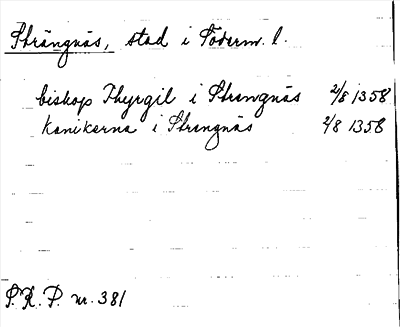 Strängnäs, stad i Söderm. l.
biskop Thyrgil i Strengnäs 2/8 1358
kanikerna i Strengnäs 2/8 1358
S.R.P. nr. 381